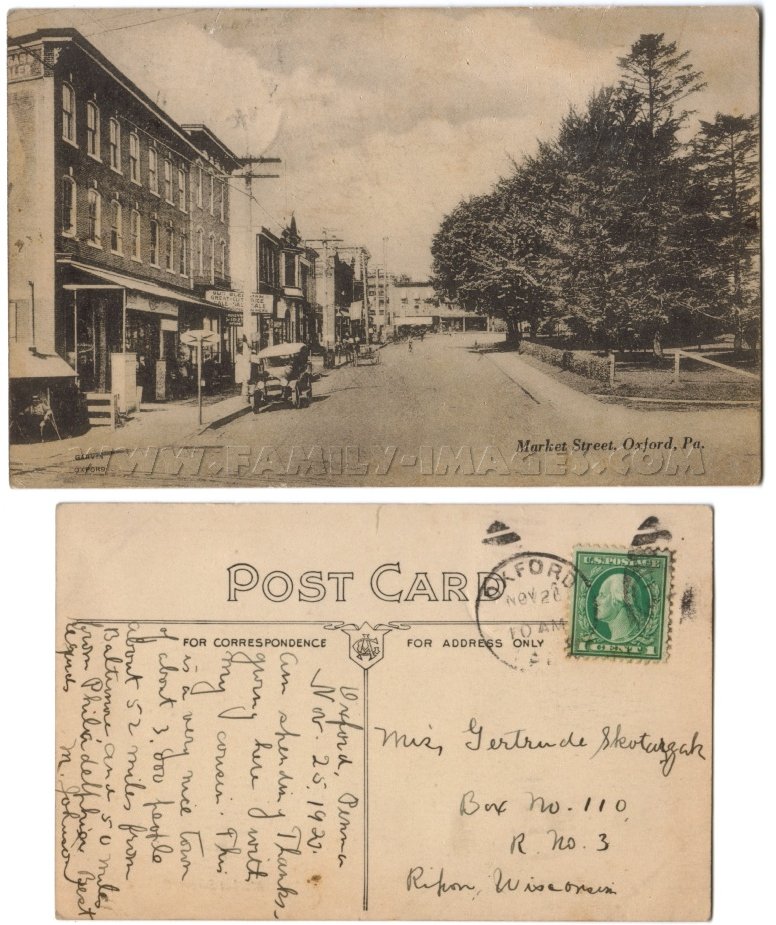 Market Street, Oxford, Pa.
GARVIN
OXFORD
WWW.FAMILY-IMAGES.COM
POST CARD
FOR CORRESPONDENCE
FOR ADDRESS ONLY
OXFORD
NOV 26
10 AM
U.S. POSTAGE
1 CENT 1
Oxford, Penna
Nov. 25, 1920.
Am spending Thanks-
giving here with
my cousin. This
is a very nice town
of about 3,000 people
about 52 miles from
Baltimore and 50 miles
from Philadelphia. Best
regards M. Johnson
Miss Gertrude Skotazgak
Box No. 110
R. No. 3
Ripon, Wisconsin